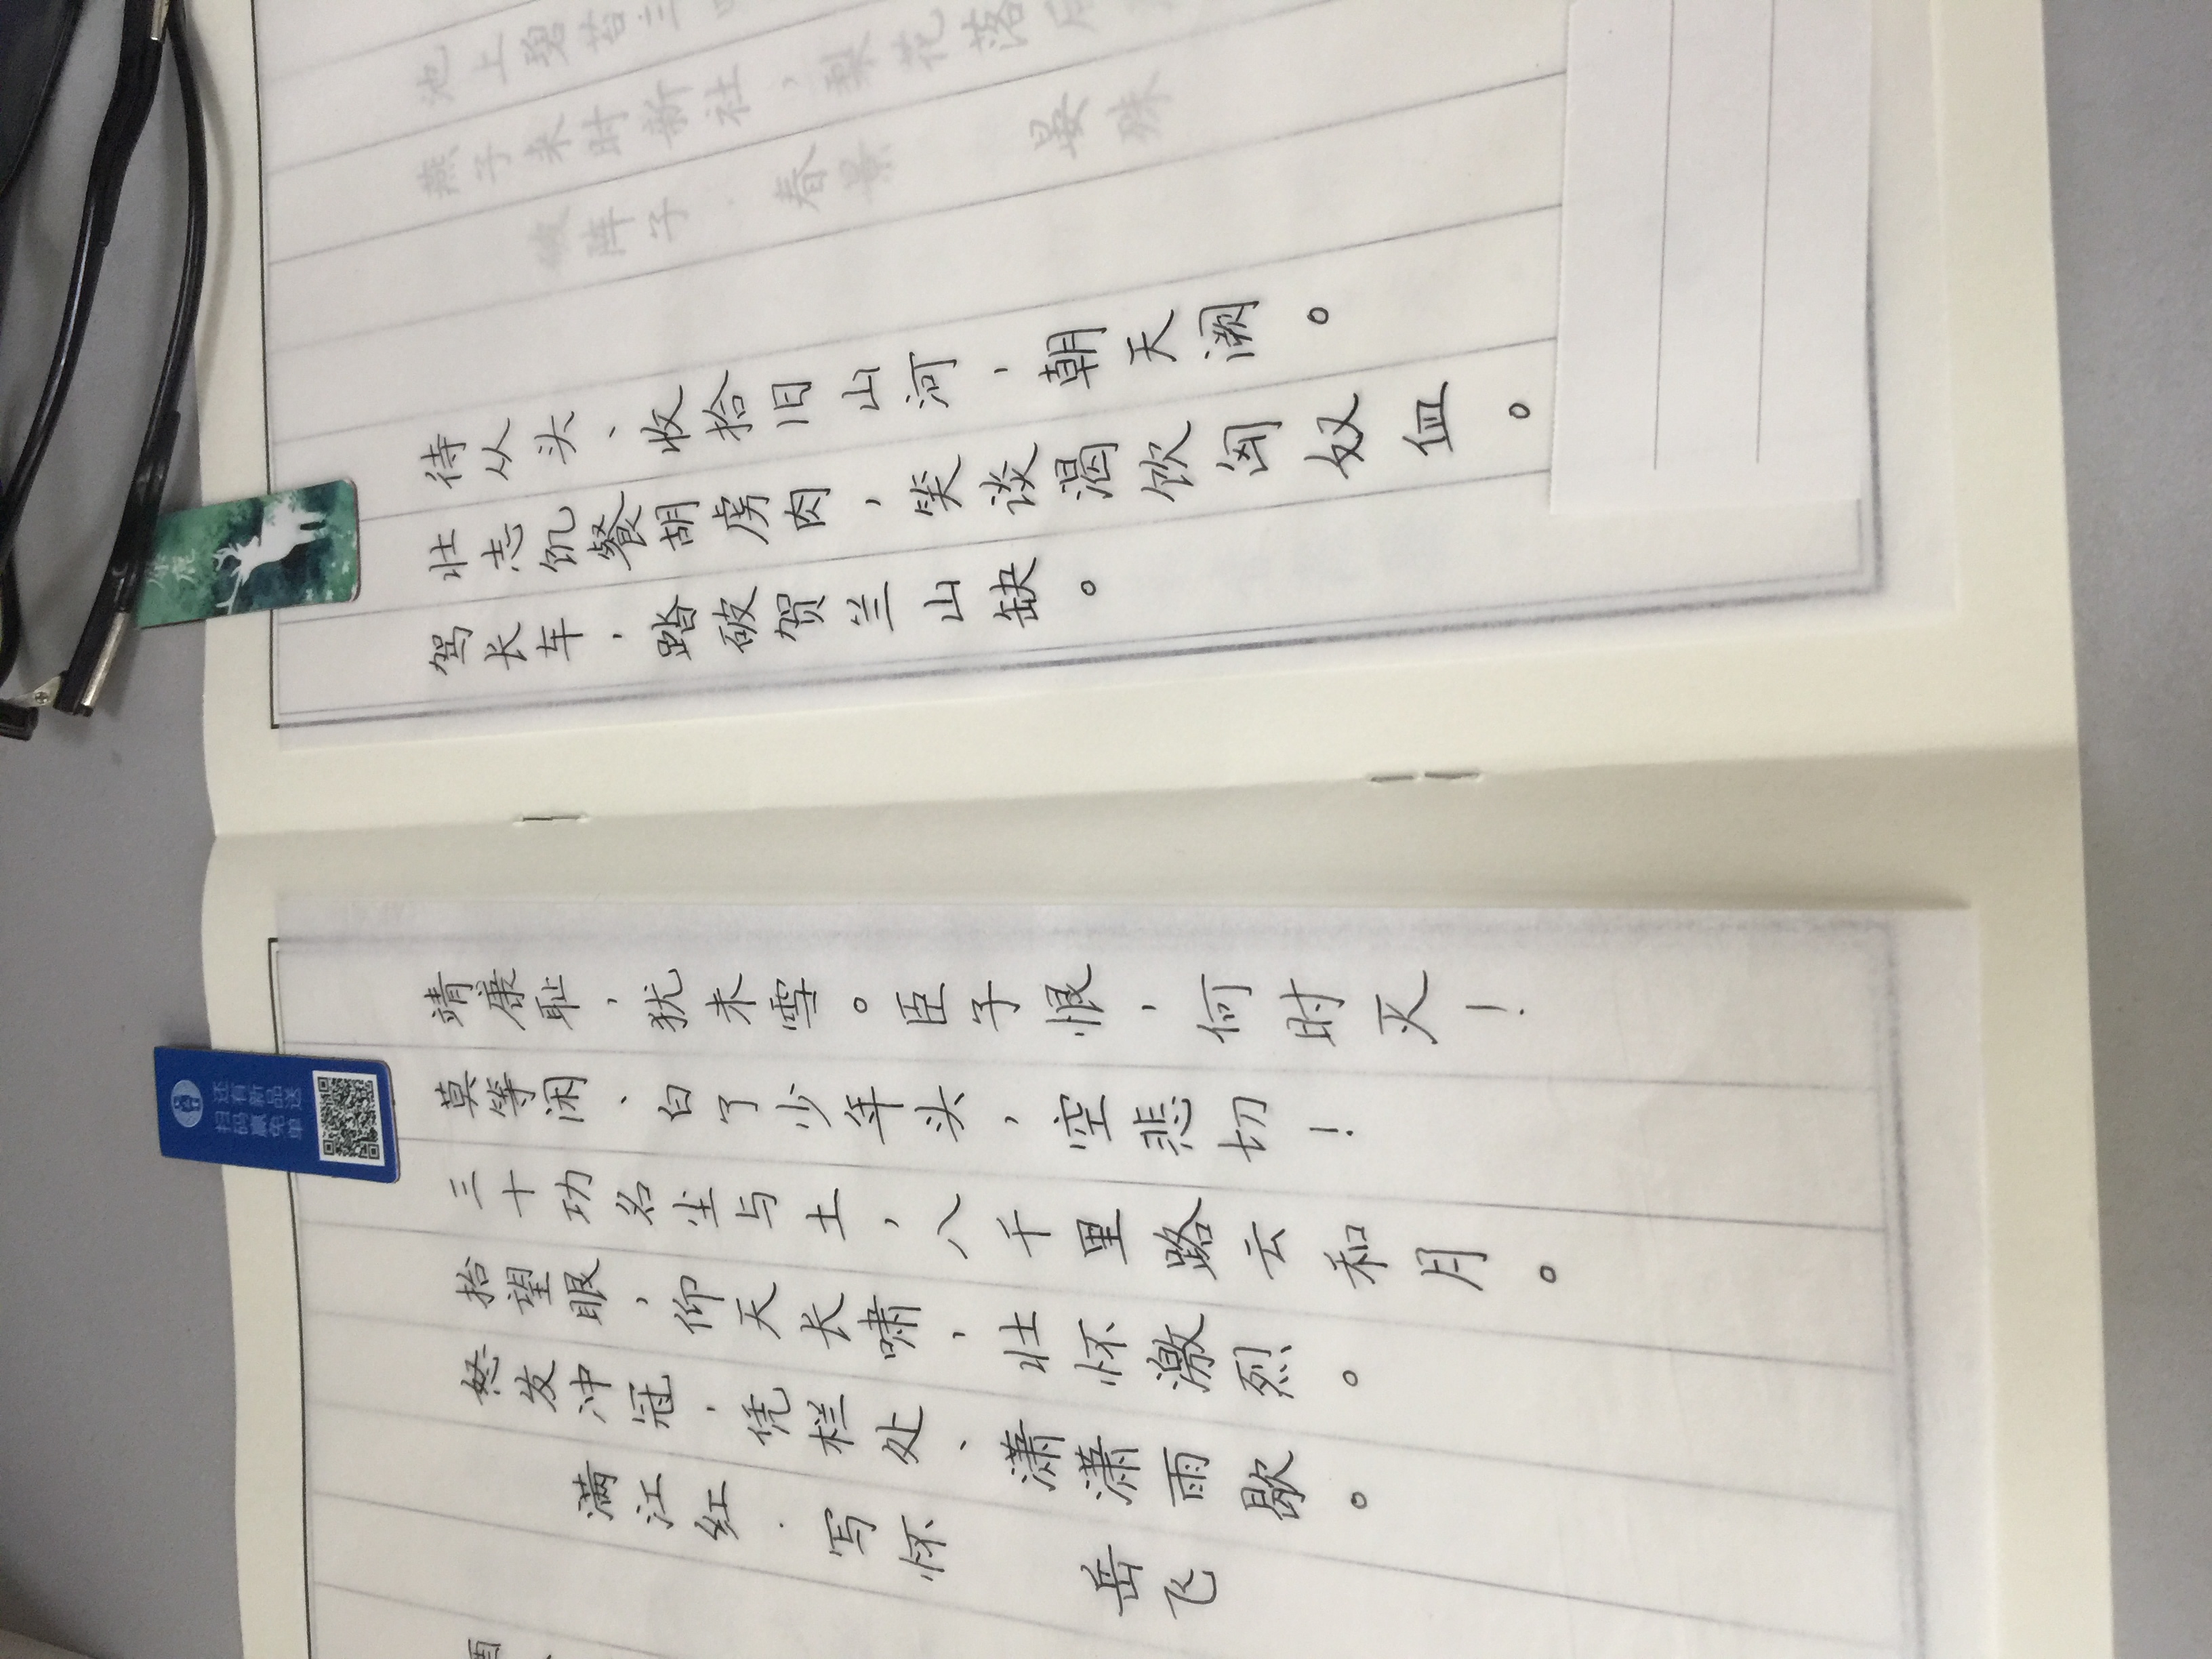 满江红·写怀
岳飞
怒发冲冠，凭栏处、潇潇雨歇。
抬望眼，仰天长啸，壮怀激烈。
三十功名尘与土，八千里路云和月。
莫等闲、白了少年头，空悲切！
靖康耻，犹未雪。臣子恨，何时灭！
驾长车，踏破贺兰山缺。
壮志饥餐胡虏肉，笑谈渴饮匈奴血。
待从头、收拾旧山河，朝天阙。
破阵子 春景
晏殊
燕子来时新社，梨花落后
池上碧苔三四
还有新品送
扫码赢免单
鹿
酒